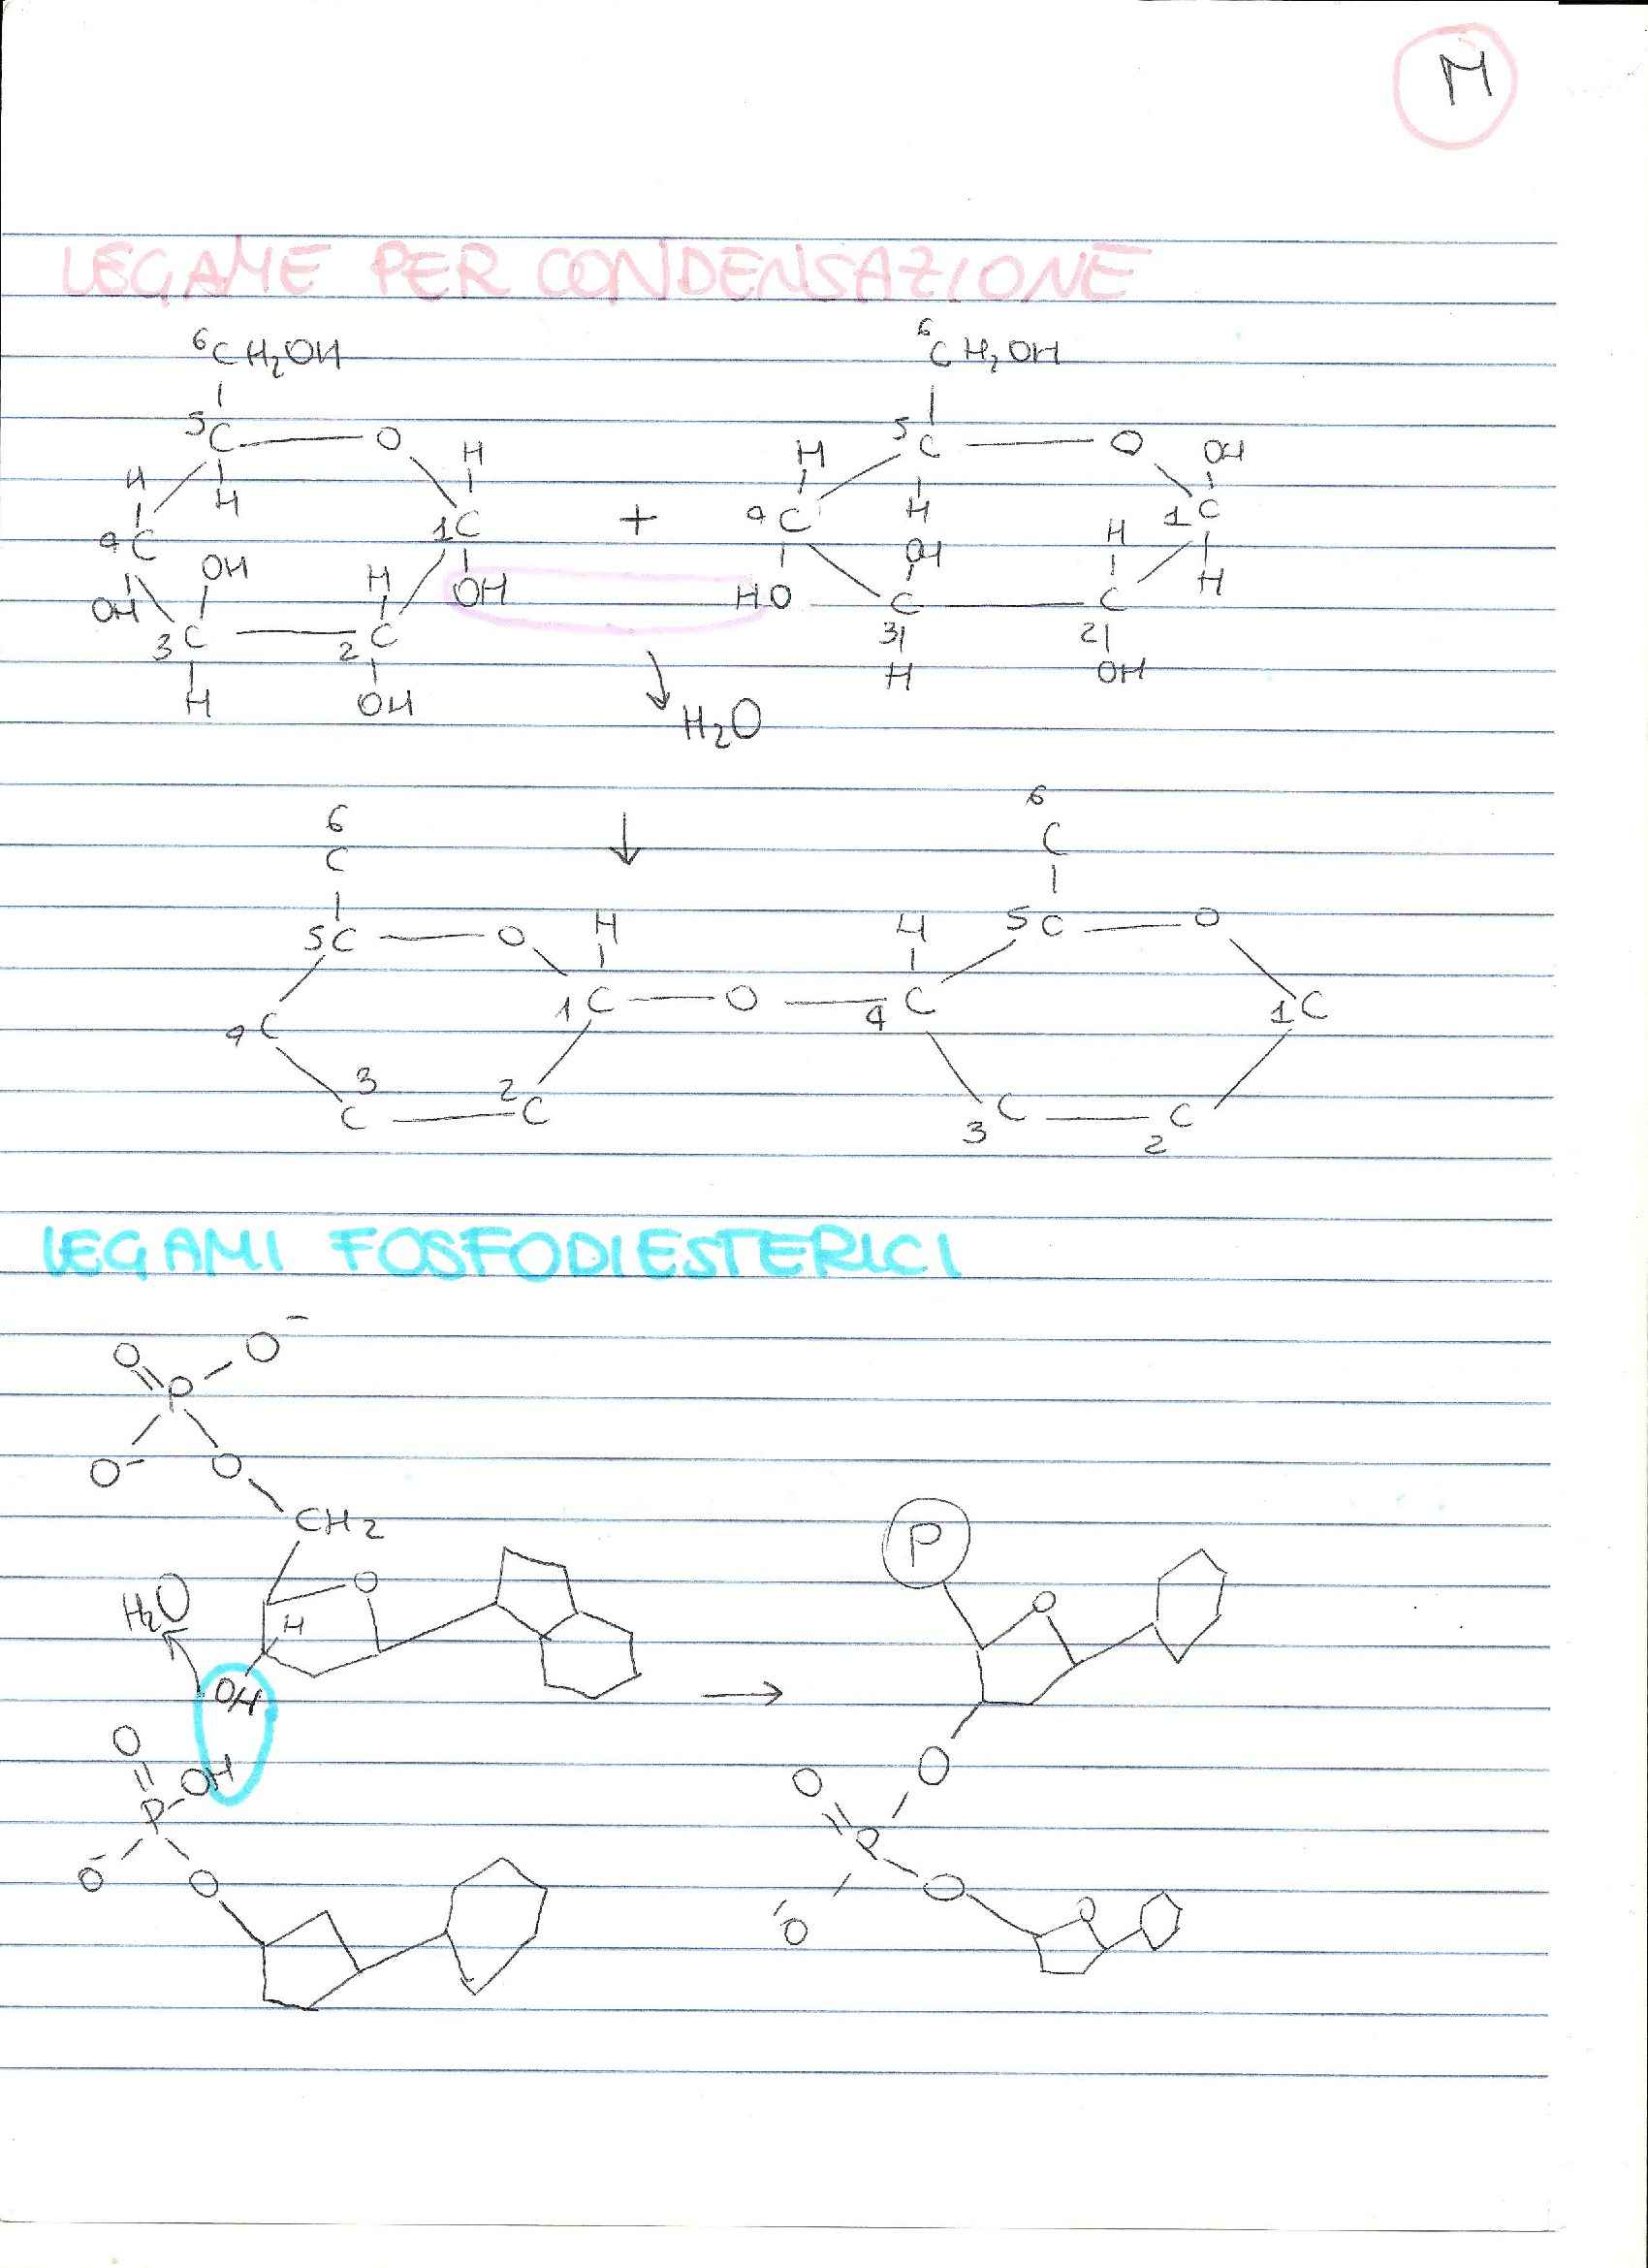 M
LEGAME PER CONDENSAZIONE
6CH2OH 6CH2OH
5C O H H 5C O OH
H H 4C H 1C
4C 1C + OH H
OH H OH HO C C H
OH 3C 2C 3 2
H OH H OH
H2O
6 6
C C
5C O H H 5C O
1C O 4C 1C
4C
3 2
C C 3C C2
LEGAMI FOSFODIESTERICI
O O-
P
O- O
CH2 P
H2O O O
H
OH
O OH O O
P P
O- O O- O O